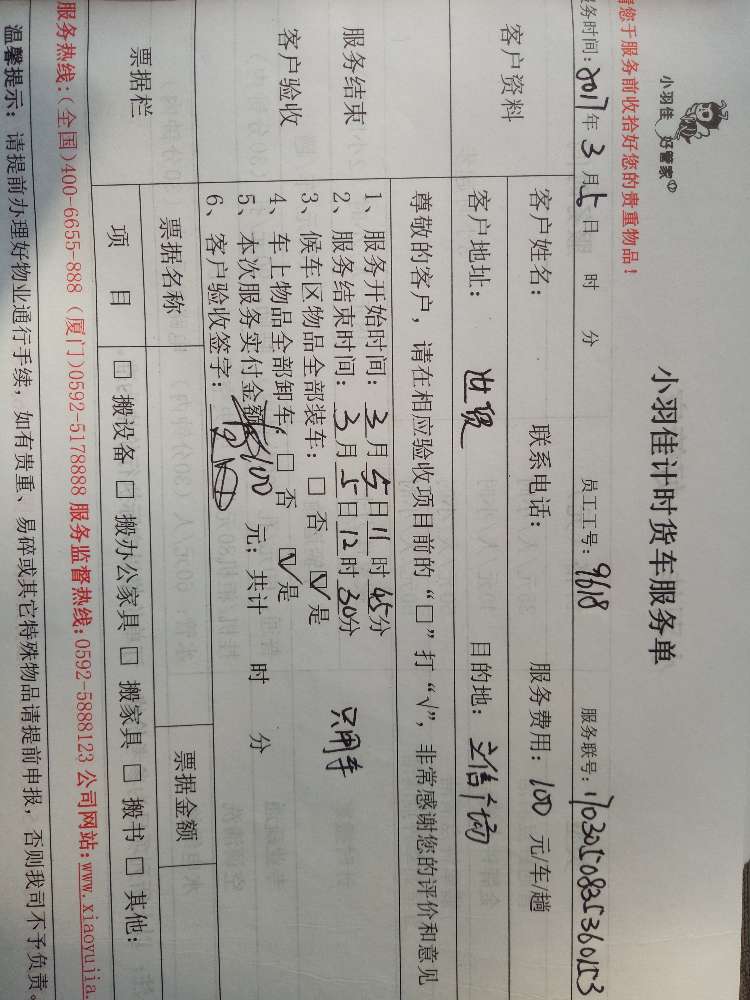 小羽佳 好管家
小羽佳计时货车服务单
请您于服务前收拾好您的贵重物品！
服务时间：2017年3月5日 时 分 员工工号：9618 服务联号：1703050825360153
客户资料
客户姓名： 联系电话： 服务费用：100 元/车/趟
客户地址：世贸 目的地：立信广场
尊敬的客户，请在相应验收项目前的“□”打“√”，非常感谢您的评价和意见
服务结束
客户验收
1、服务开始时间：3月5日11时45分
2、服务结束时间：3月5日12时30分
3、候车区物品全部装车：□ 否 ☑是 只用车
4、车上物品全部卸车：□ 否 ☑是
5、本次服务实付金额100元；共计 时 分
6、客户验收签字：
票据栏
票据名称 票据金额
项 目 □ 搬设备 □ 搬办公家具 □ 搬家具 □ 搬书 □ 其他：
服务热线：(全国)400-6655-888 (厦门)0592-5178888 服务监督热线：0592-5888123 公司网站：www.xiaoyujia.
温馨提示：请提前办理好物业通行手续，如有贵重、易碎或其它特殊物品请提前申报，否则我司不予负责。